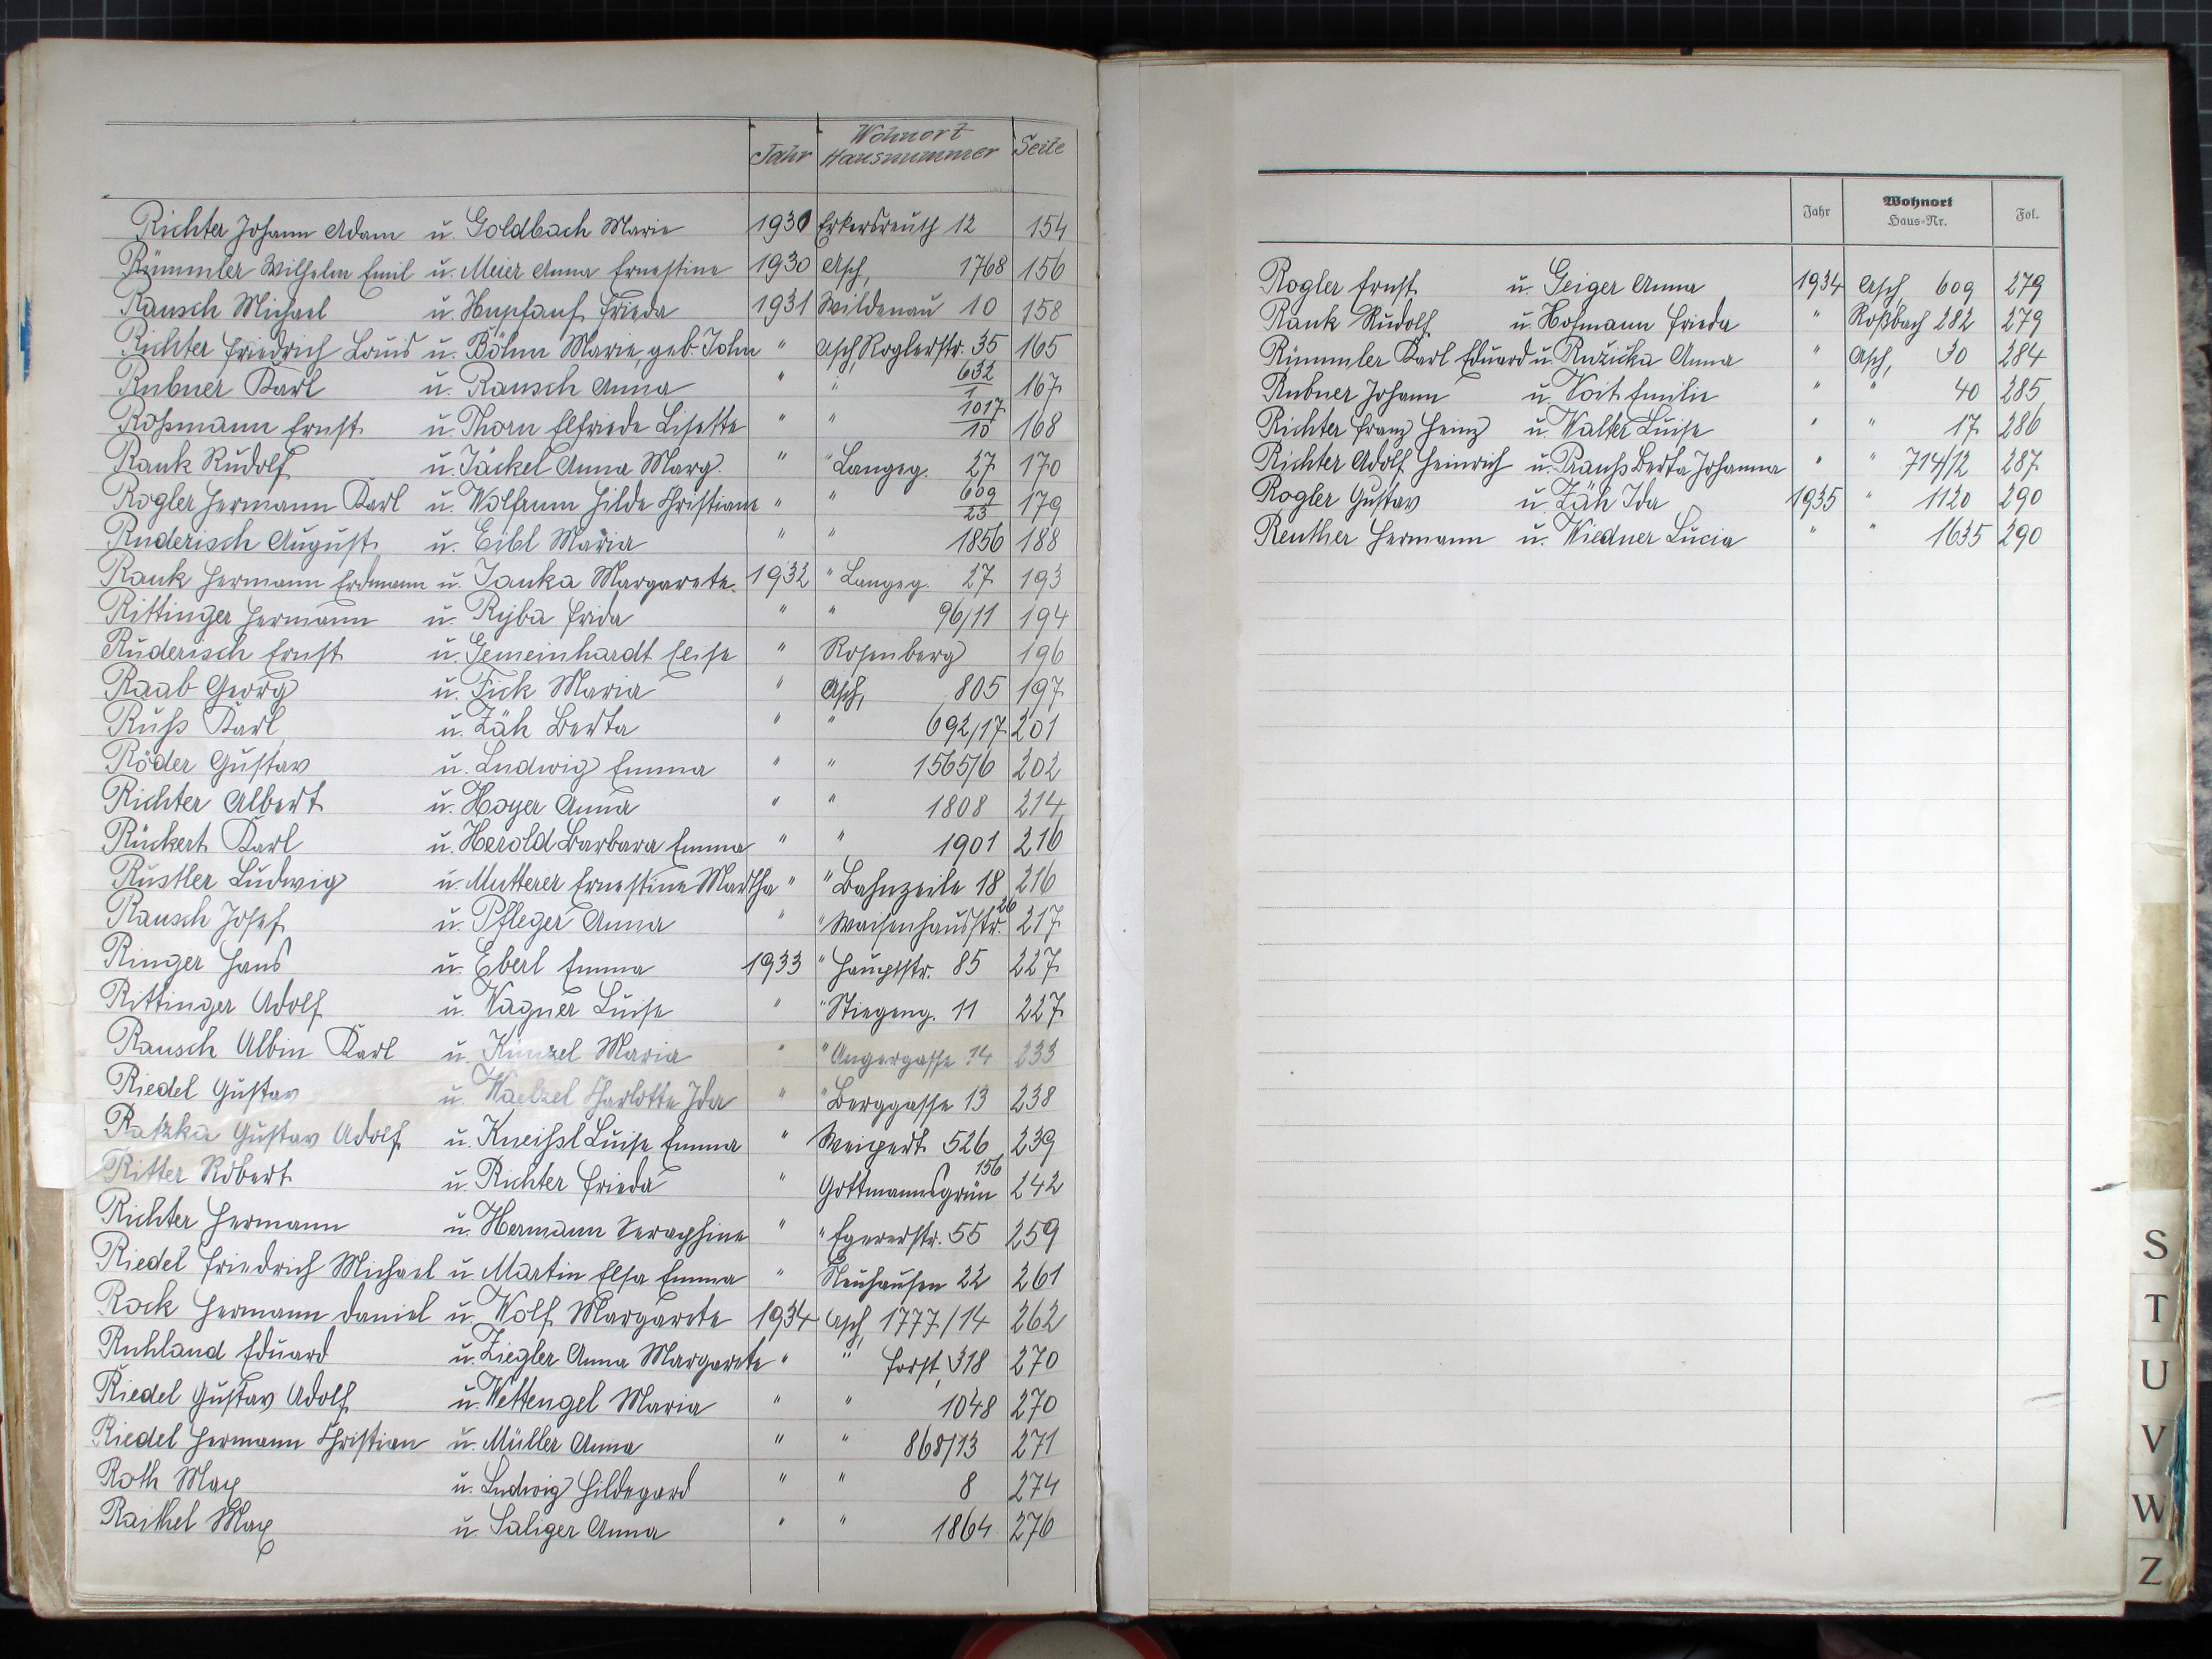 Jahr Wohnort Hausnummer Seite
Richter Johann Adam u. Goldbach Marie 1930 Erkersreuth 12 154
Rümmler Wilhelm Emil u. Meier Anna Ernestine 1930 Asch, 1768 156
Rausch Michael u. Hupfauf Frieda 1931 Wildenau 10 158
Richter Friedrich Louis u. Böhm Marie, geb. John " Asch, Roglerstr. 35 165
Rubner Karl u. Rausch Anna " " 632/1 167
Roßmann Ernst u. Thorn Elfriede Lisette " " 1017/10 168
Rank Rudolf u. Jäckel Anna Marg. " " Langeg. 27 170
Rogler Hermann Karl u. Wolfrum Hilde Christiane " " 609/23 179
Ruderisch August u. Eibl Maria " " 1856 188
Rank Hermann Erdmann u. Janka Margarete. 1932 " Langeg. 27 193
Rittinger Hermann u. Ryba Frida " " 96/11 194
Ruderisch Ernst u. Gemeinhardt Elise " Rosenberg 196
Raab Georg u. Fick Maria " Asch, 805 197
Ruß Karl u. Zäh Berta " " 692/17 201
Röder Gustav u. Ludwig Emma " " 1565/6 202
Richter Albert u. Hoyer Anna " " 1808 214
Rückert Karl u. Herold Barbara Emma " " 1901 216
Rustler Ludwig u. Mutterer Ernestine Martha " " Bahnzeile 18 216
Rausch Josef u. Pfleger Anna " " Waisenhausstr. 26 217
Ringer Hans u. Eberl Emma 1933 " Hauptstr. 85 227
Rittinger Adolf u. Wagner Luise " " Stiegeng. 11 227
Rausch Albin Karl u. Künzel Maria " " Angergasse 14 233
Riedel Gustav u. Waelzel Charlotte Ida " " Berggasse 13 238
Ratzka Gustav Adolf u. Kneißl Luise Emma " Weipert 526 239
Ritter Robert u. Richter Frieda " Gottmannsgrün 156 242
Richter Hermann u. Hermann Seraphine " " Egererstr. 55 259
Riedel Friedrich Michael u. Martin Elsa Emma " Neuhausen 22 261
Rock Hermann Daniel u. Wolf Margarete 1934 Asch, 1777/14 262
Ruhland Eduard u. Ziegler Anna Margarete " " Forst, 318 270
Riedel Gustav Adolf u. Wettengel Maria " " 1048 270
Riedel Hermann Christian u. Müller Anna " " 868/13 271
Roth Max u. Ludwig Hildegard " " 8 274
Raithel Max u. Saliger Anna " " 1864 276
Jahr Wohnort Haus-Nr. Fol.
Rogler Ernst u. Geiger Anna 1934 Asch, 609 279
Rank Rudolf u. Hofmann Frieda " Roßbach 282 279
Rümmler Karl Eduard u. Ružička Anna " Asch, 30 284
Rubner Johann u. Voit Emilie " " 40 285
Richter Franz Heinz u. Walter Luise " " 17 286
Richter Adolf Heinrich u. Prauß Berta Johanna " " 714/2 287
Rogler Gustav u. Zäh Ida 1935 " 1120 290
Reuther Hermann u. Wiedner Lucia " " 1635 290
S
T
U
V
W
Z